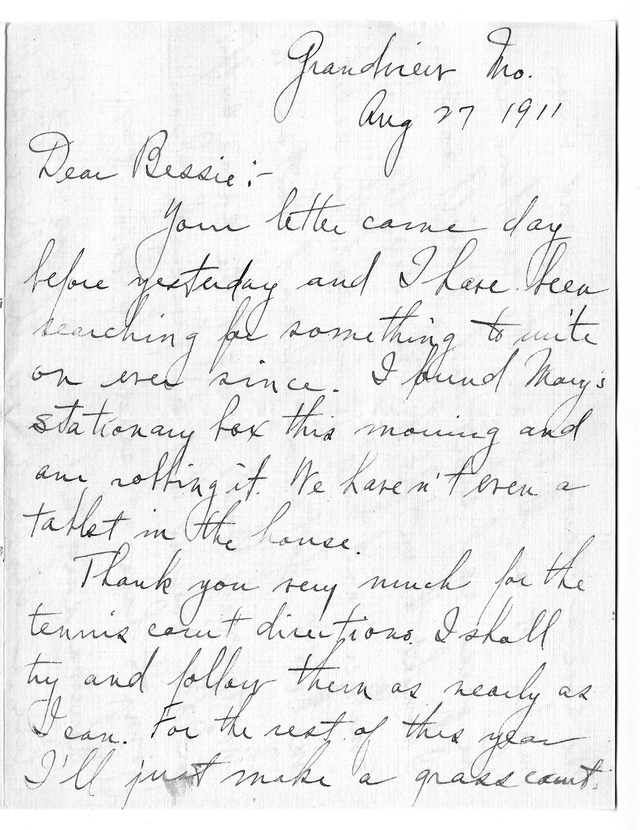 Grandview Mo.
Aug 27 1911
Dear Bessie:-
Your letter came day
before yesterday and I have been
searching for something to write
on ever since. I found Mary's
stationary box this morning and
am robbing it. We haven't even a
tablet in the house.
Thank you very much for the
tennis court directions. I shall
try and follow them as nearly as
I can. For the rest of this year
I'll just make a grass court.